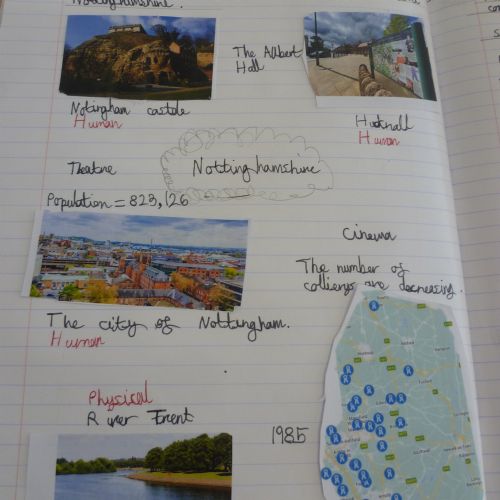 Nottinghamshire.
The Albert
Hall
Notingham castale
Human
Hucknall
Human
Theatre
Nottinghamshire
Population = 823,126
Cinema
The number of
collierys are decreasing.
The city of Nottingham.
Human
Physical
River Trent
1985